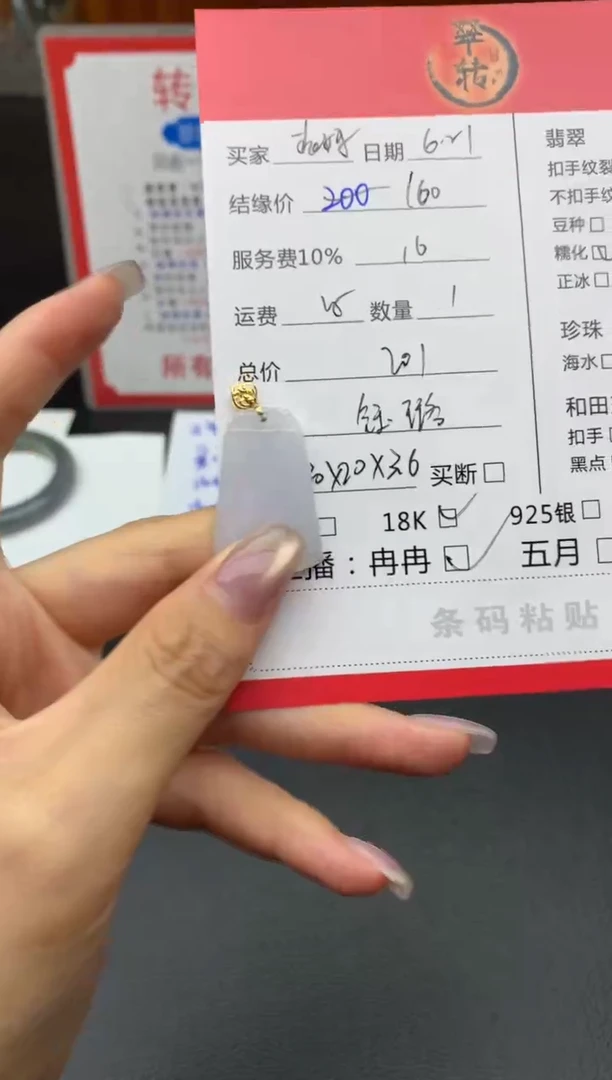 翠
转
转
买家 日期 6.21
结缘价 200 160
服务费10% 16
运费 数量 1
总价 201
X20X3.6 买断
18K 925银
播：冉冉 五月
条码粘贴
翡翠
扣手纹裂
不扣手纹
豆种
糯化
正冰
珍珠
海水
和田
扣手
黑点
所有